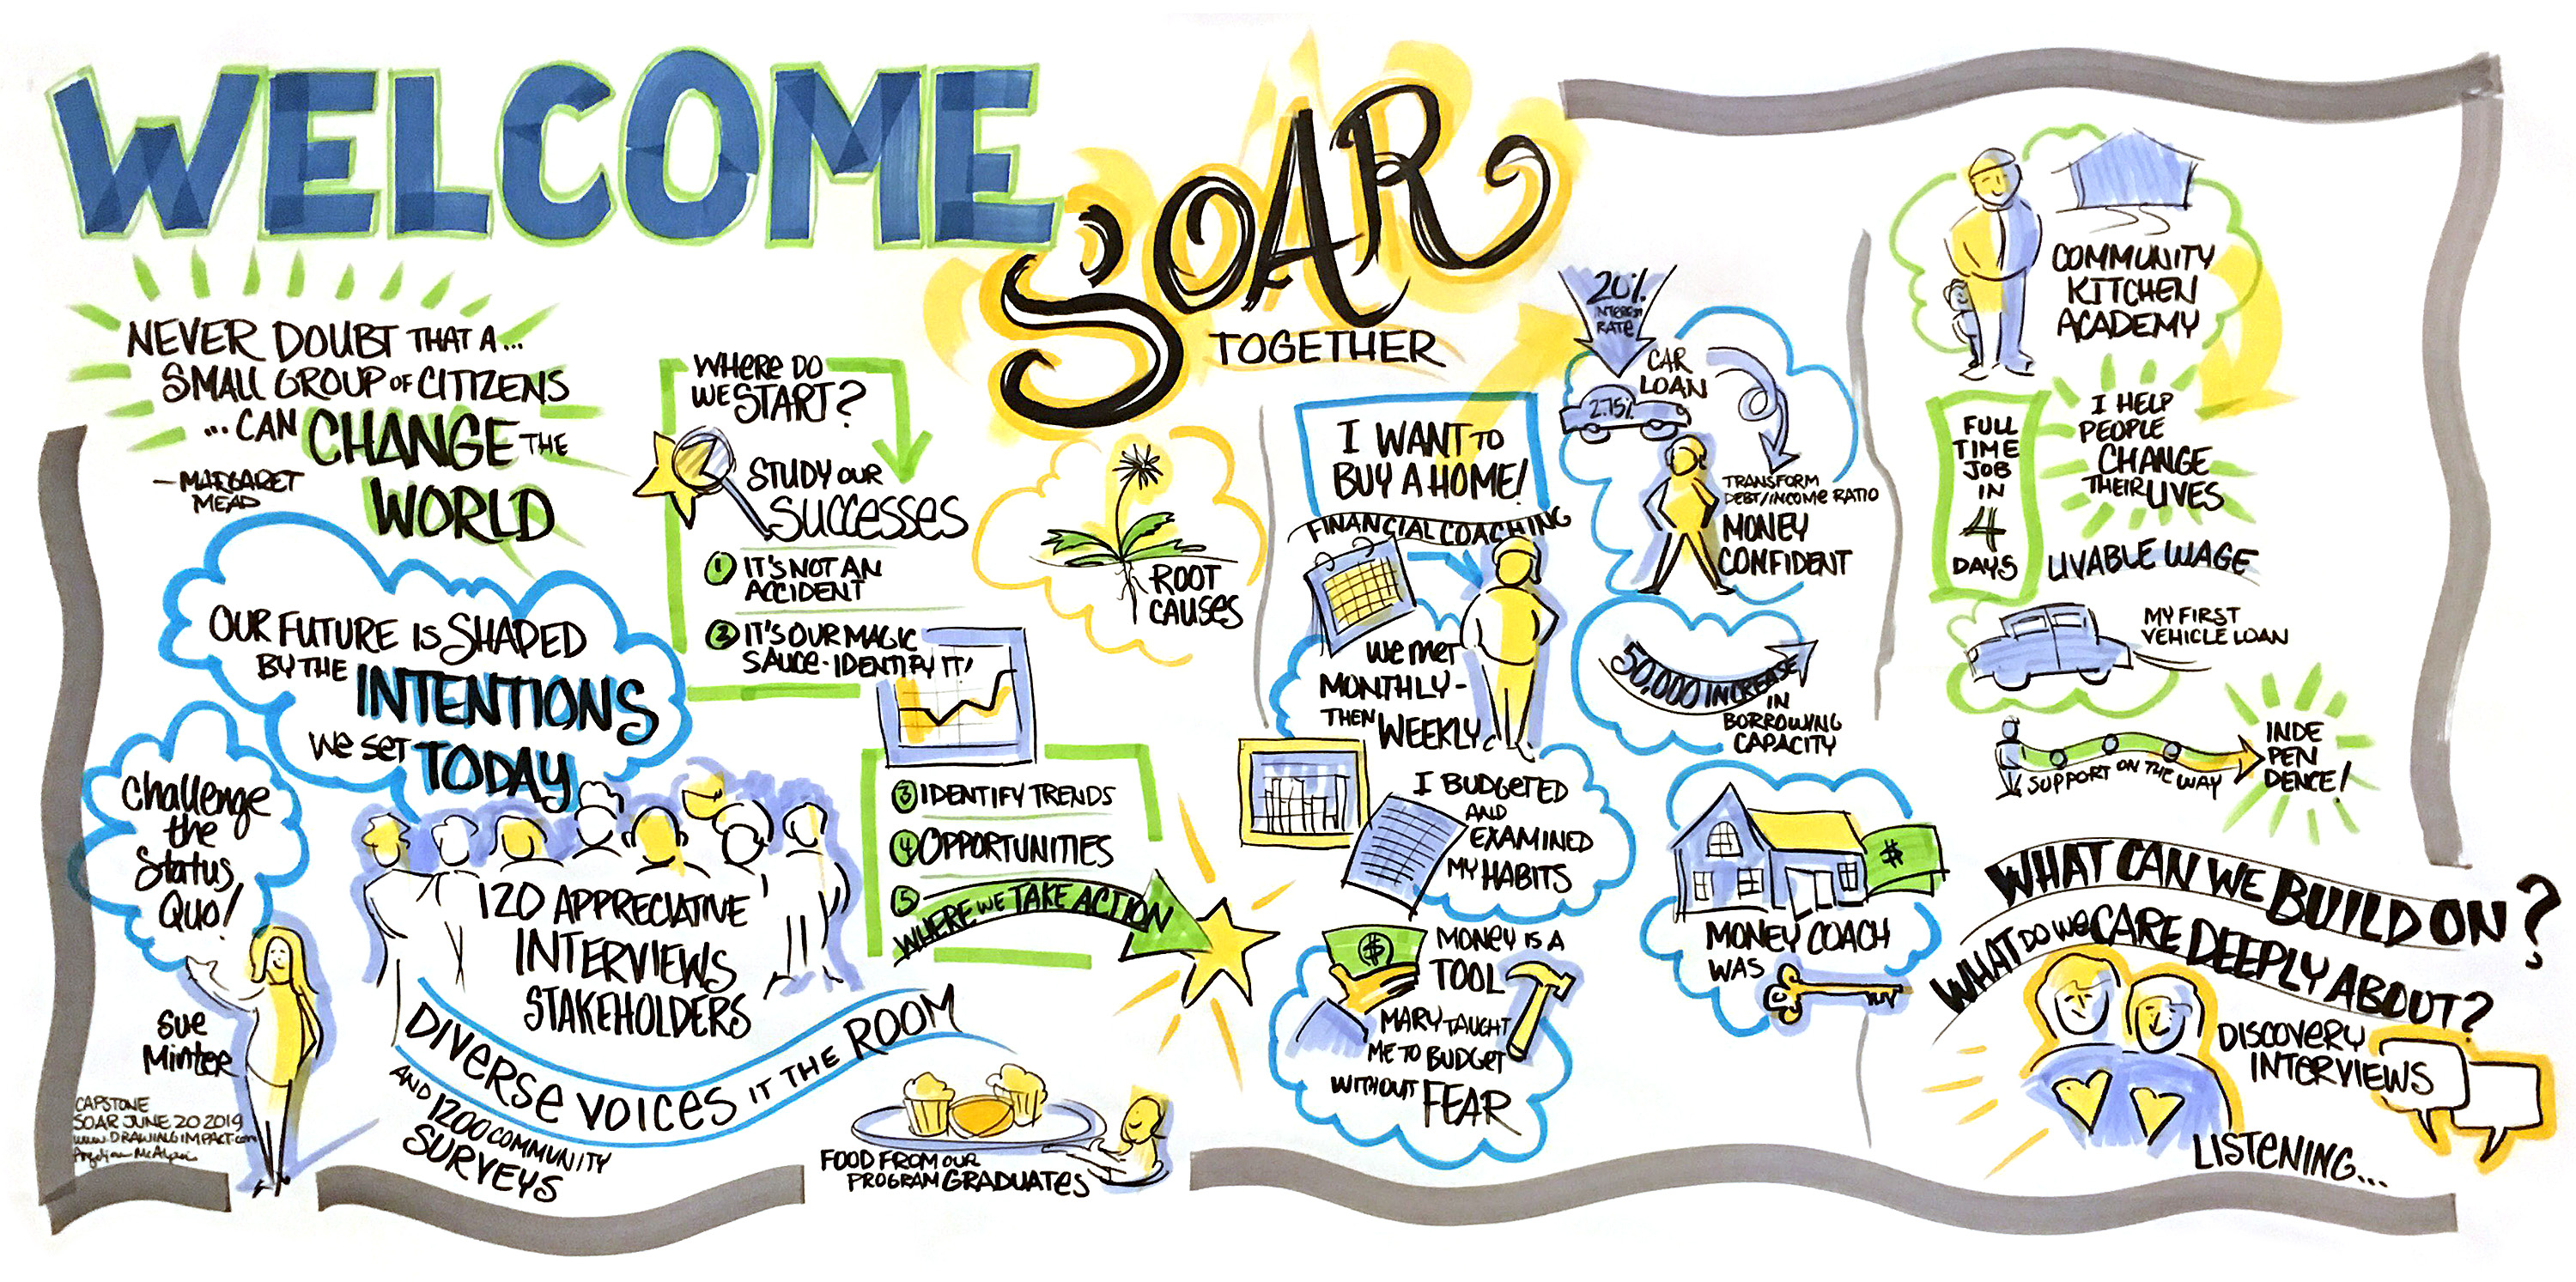 WELCOME
SOAR
TOGETHER
NEVER DOUBT THAT A...
SMALL GROUP OF CITIZENS
...CAN CHANGE THE
WORLD
- MARGARET
MEAD
OUR FUTURE IS SHAPED
BY THE INTENTIONS
WE SET TODAY
Challenge
the
Status
Quo!
Sue
Minter
CAPSTONE
SOAR JUNE 20 2019
www.DRAWINGIMPACT.com
120 APPRECIATIVE
INTERVIEWS
STAKEHOLDERS
DIVERSE VOICES IT THE ROOM
AND 1200 COMMUNITY
SURVEYS
WHERE DO
WE START?
STUDY OUR
SUCCESSES
1 IT'S NOT AN
ACCIDENT
2 IT'S OUR MAGIC
SAUCE - IDENTIFY IT!
3 IDENTIFY TRENDS
4 OPPORTUNITIES
5
WHERE WE TAKE ACTION
FOOD FROM OUR
PROGRAM GRADUATES
ROOT
CAUSES
I WANT TO
BUY A HOME!
FINANCIAL COACHING
WE MET
MONTHLY-
THEN WEEKLY
I BUDGETED
AND
EXAMINED
MY HABITS
$
MONEY IS A
TOOL
MARY TAUGHT
ME TO BUDGET
WITHOUT FEAR
20%
INTEREST
RATE
CAR
LOAN
2.75%
TRANSFORM
DEBT/INCOME RATIO
MONEY
CONFIDENT
50,000 INCREASE
IN
BORROWING
CAPACITY
$
MONEY COACH
WAS
COMMUNITY
KITCHEN
ACADEMY
FULL
TIME
JOB
IN
4
DAYS
I HELP
PEOPLE
CHANGE
THEIR LIVES
LIVABLE WAGE
MY FIRST
VEHICLE LOAN
SUPPORT ON THE WAY
INDE
PEN
DENCE!
WHAT CAN WE BUILD ON?
WHAT DO WE CARE DEEPLY ABOUT?
DISCOVERY
INTERVIEWS
LISTENING...